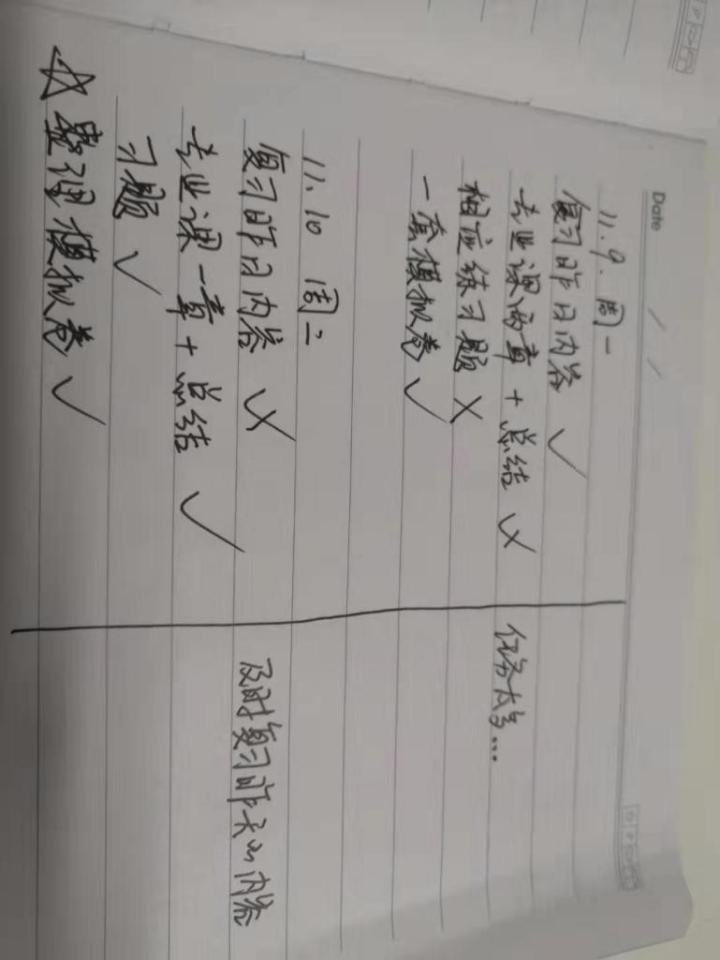 Date / /
11.9. 周一
复习昨日内容 ✓
专业课两章 + 总结 × 任务太多...
相应练习题 ×
一套模拟卷 ✓
11.10 周二
复习昨日内容 × 及时复习昨天的内容
专业课一章 + 总结 ✓
习题 ✓
☆ 整理模拟卷 ✓